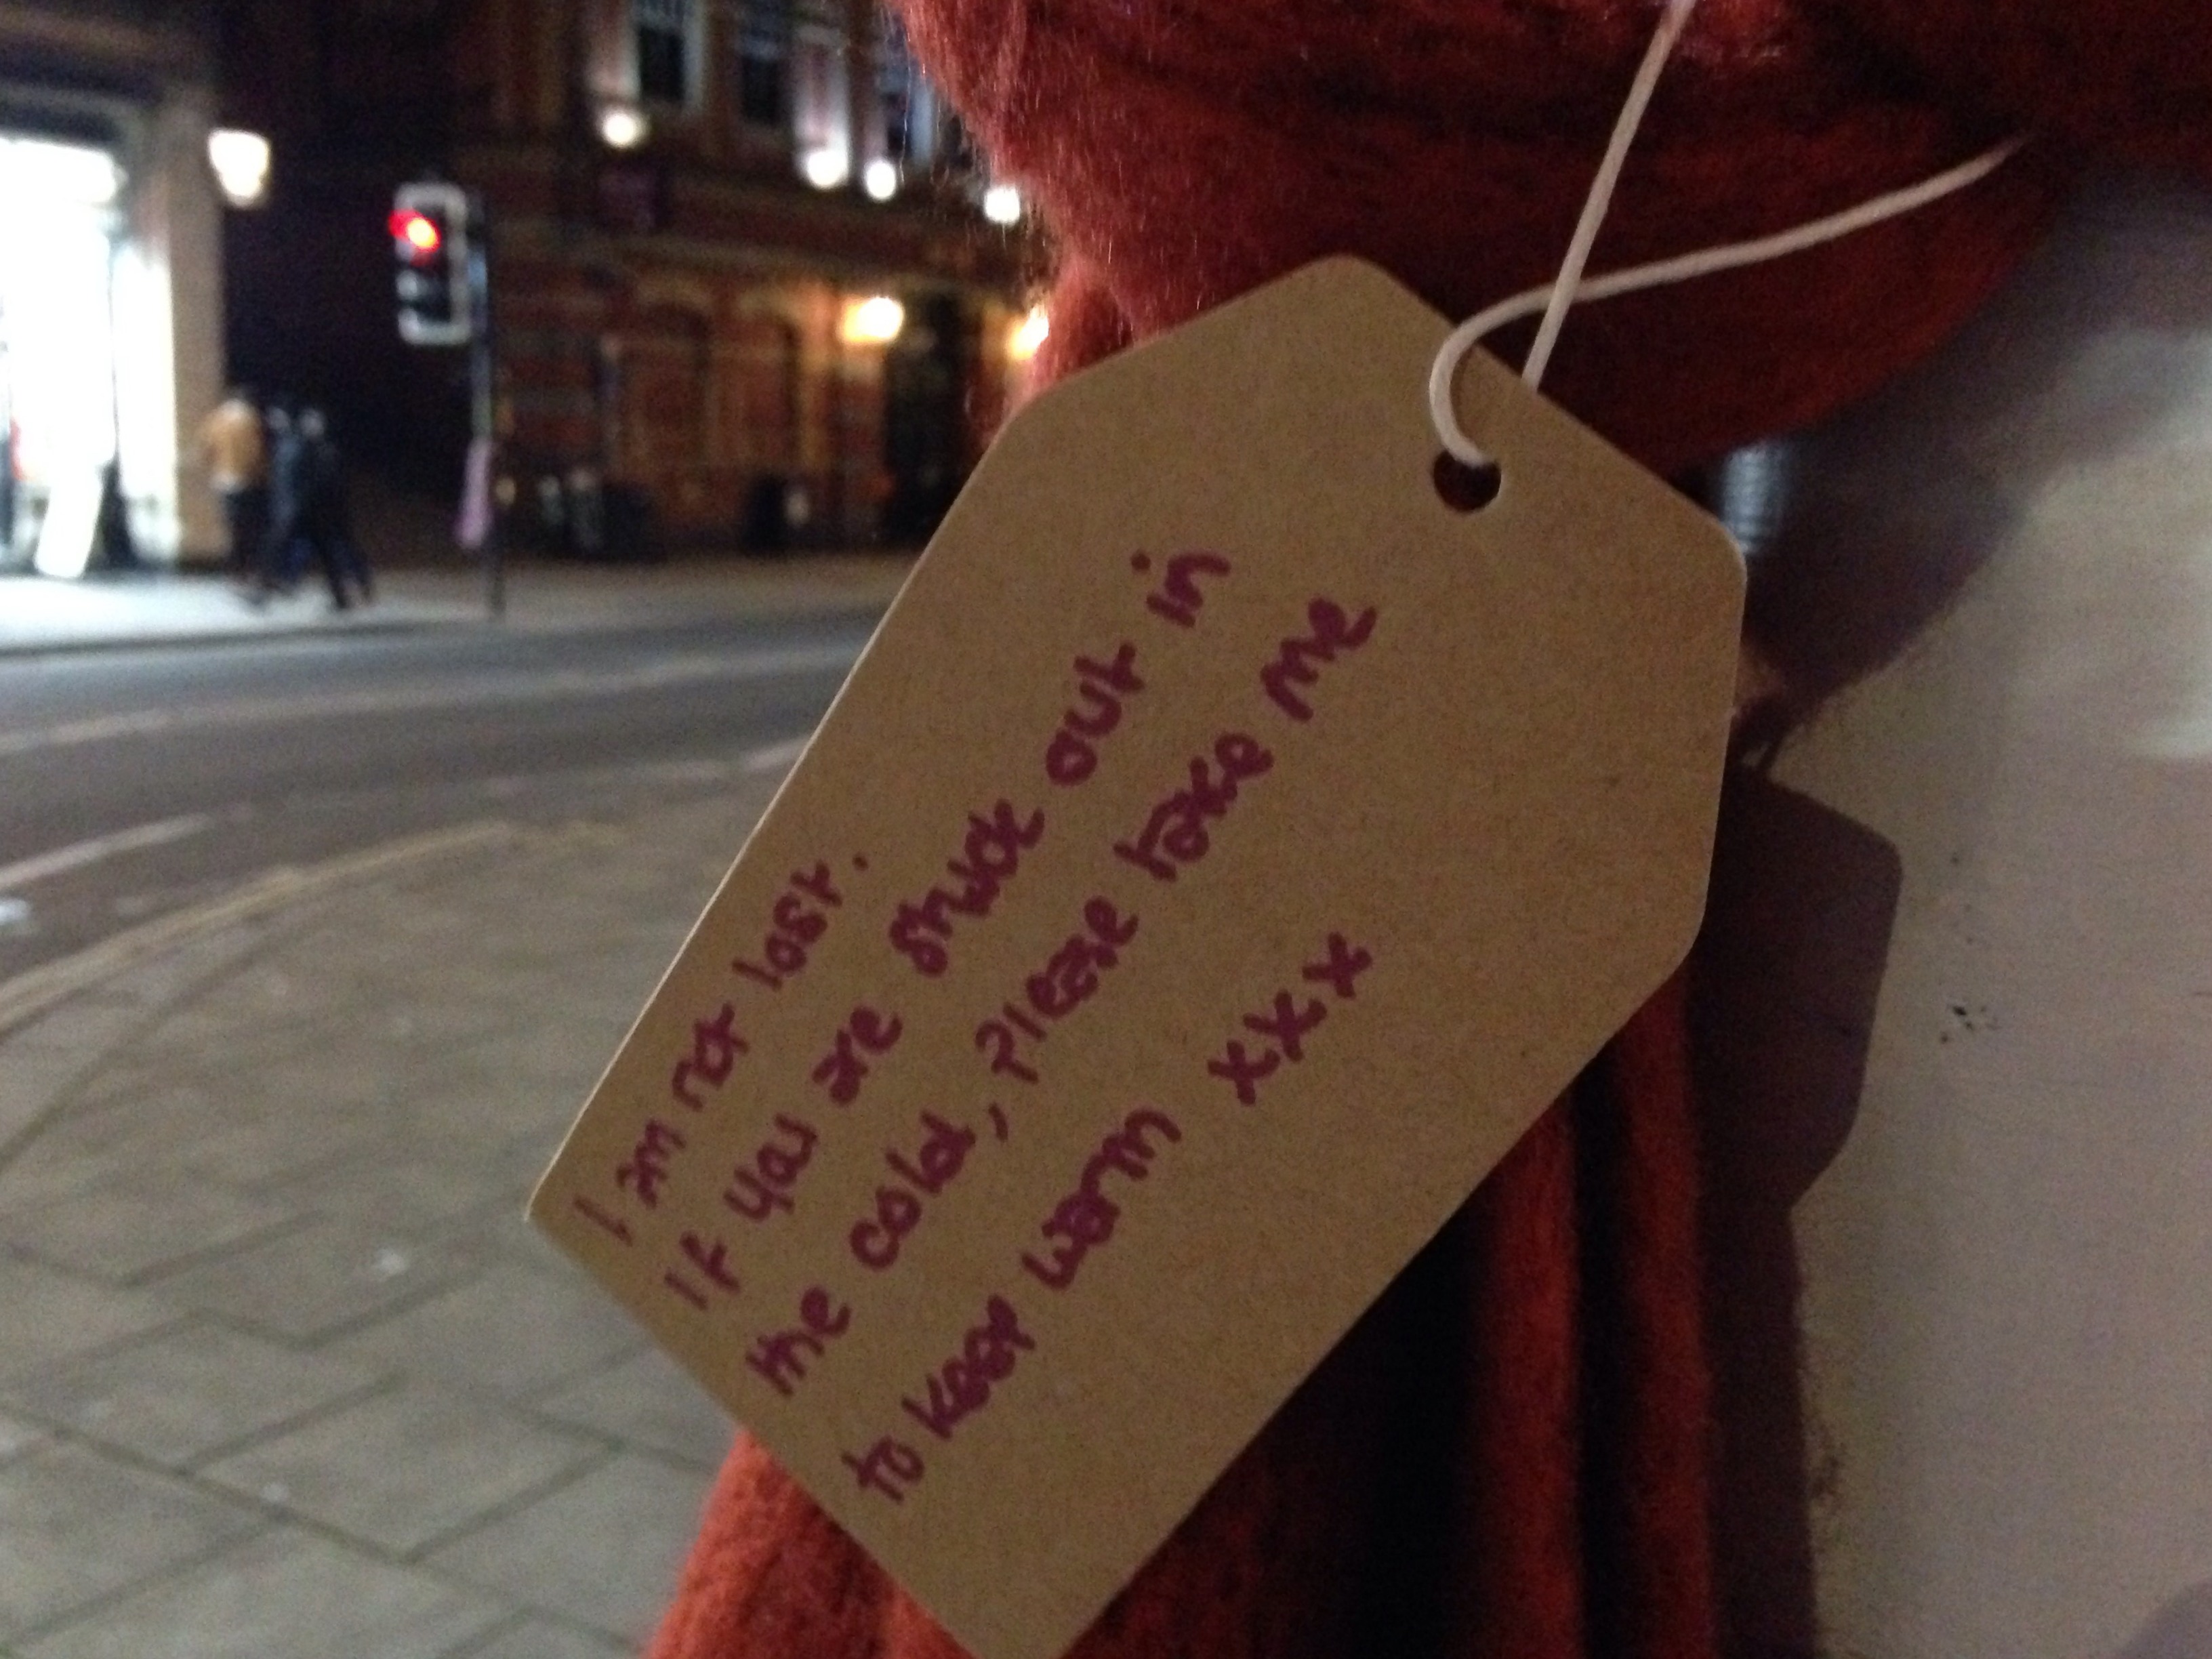 I am not lost.
If you are stuck out in
the cold, please take me
to keep warm xxx